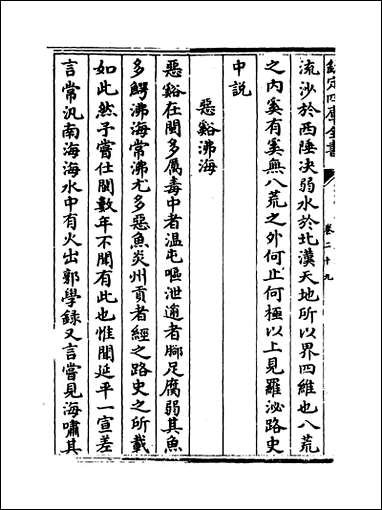 欽定四庫全書
卷二十九
流沙於西陲决弱水於北漠天地所以界四維也八荒
之内奚有奚無八荒之外何止何極以上見羅泌路史
中説
惡谿沸海
惡谿在閩多厲毒中者温屯嘔泄逾者脚足腐弱其魚
多鰐沸海常沸尤多惡魚炎州貢者經之路史之所載
如此然予嘗仕閩數年不聞有此也惟聞延平一宣差
言常汎南海海水中有火出郭學録又言嘗見海嘯其